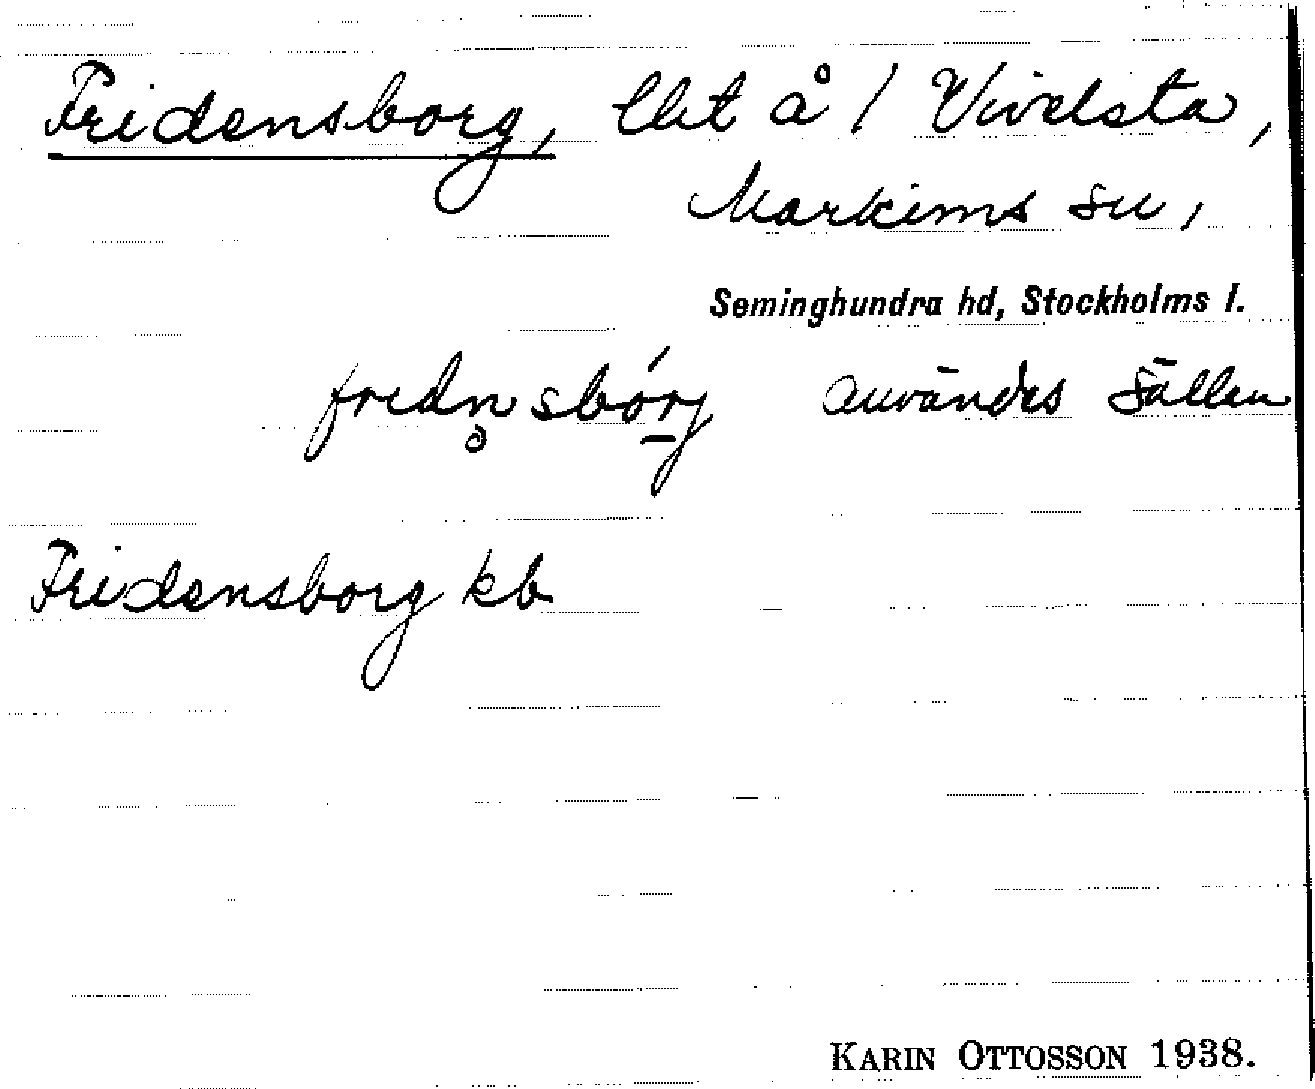 Fridensborg, lht å / Vivelsta,
Markims sn,
Seminghundra hd, Stockholms l.
frednsbórj användes sällen
Fridensborg kb
KARIN OTTOSSON 1938.